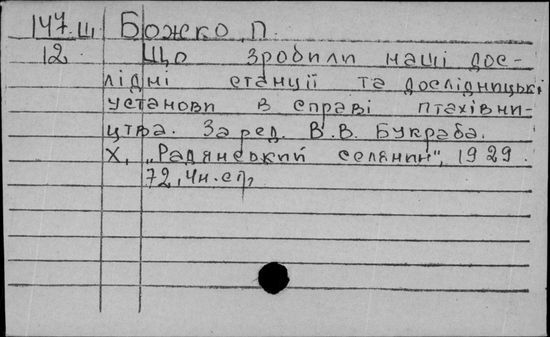 147.Щ. Божко, П.
12 Що зробили наші дос-
лідні станції та дослідницькі
установи в справі птахівни-
цтва. За ред. В.В. Букраба.
Х., „Радянський селянин", 1929.
72, 4н.ст,